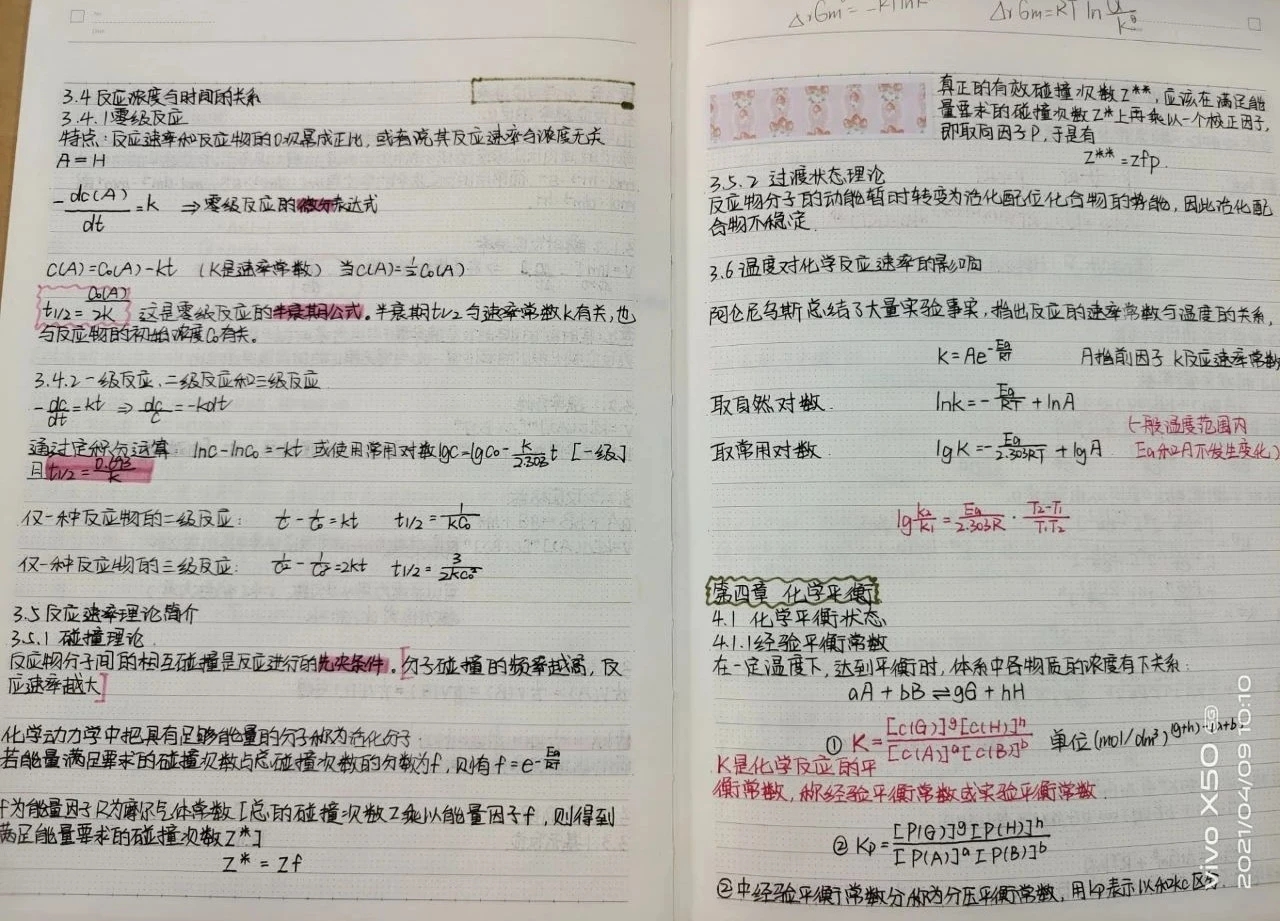 3.4 反应浓度与时间的关系
3.4.1 零级反应
特点：反应速率和反应物的0次幂成正比，或者说其反应速率与浓度无关
A = H
-dc(A)/dt = k ⇒零级反应的微分表达式
C(A)=C₀(A)-kt （K是速率常数） 当C(A)=½C₀(A)
t1/2 = C₀(A)/2K 这是零级反应的半衰期公式。半衰期t1/2与速率常数K有关，也
与反应物的初始浓度C₀有关。
3.4.2 一级反应、二级反应和三级反应
-dc/dt = kt ⇒ dc/c = -kdt
通过定积分运算 lnc-lnc₀=-kt 或使用常用对数lgc=lgc₀-K/2.303 t [一级]
且t1/2 = 0.693/K
仅一种反应物的二级反应： 1/c - 1/c₀ = kt t1/2 = 1/kc₀
仅一种反应物的三级反应： 1/c² - 1/c₀² = 2kt t1/2 = 3/2kc₀²
3.5 反应速率理论简介
3.5.1 碰撞理论
反应物分子间的相互碰撞是反应进行的先决条件。[分子碰撞的频率越高，反
应速率越大]
化学动力学中把具有足够能量的分子称为活化分子
若能量满足要求的碰撞次数占总碰撞次数的分数为f，则有f=e^-Ea/RT
f为能量因子R为摩尔气体常数[总的碰撞次数Z乘以能量因子f，则得到
满足能量要求的碰撞次数Z*]
Z* = Zf
ΔrGm = -RTlnK ΔrGm=RT ln Q/K
真正的有效碰撞次数Z**，应该在满足能
量要求的碰撞次数Z*上再乘以一个校正因子，
即取向因子P，于是有
Z**=Zfp.
3.5.2 过渡状态理论
反应物分子的动能暂时转变为活化配位化合物的势能，因此活化配
合物不稳定.
3.6 温度对化学反应速率的影响
阿仑尼乌斯总结了大量实验事实，指出反应的速率常数与温度的关系，
K=Ae^-Ea/RT A指前因子 K反应速率常数
取自然对数. lnk=-Ea/RT+lnA
(一般温度范围内
取常用对数 lgK=-Ea/2.303RT+lgA Ea和A不发生变化)
lg k₂/k₁ = Ea/2.303R · T₂-T₁/T₁T₂
第四章 化学平衡
4.1 化学平衡状态
4.1.1经验平衡常数
在一定温度下，达到平衡时，体系中各物质的浓度有下关系：
aA + bB ⇌ gG + hH
① K = [C(G)]^g[C(H)]^h/[C(A)]^a[C(B)]^b 单位(mol/dm³)^(g+h)-(a+b)
K是化学反应的平
衡常数，称经验平衡常数或实验平衡常数
② Kp = [P(G)]^g[P(H)]^h/[P(A)]^a[P(B)]^b
②中经验平衡常数分称为分压平衡常数，用Kp表示以和kc区分.
vivo X50 5G
2021/04/09 10:10